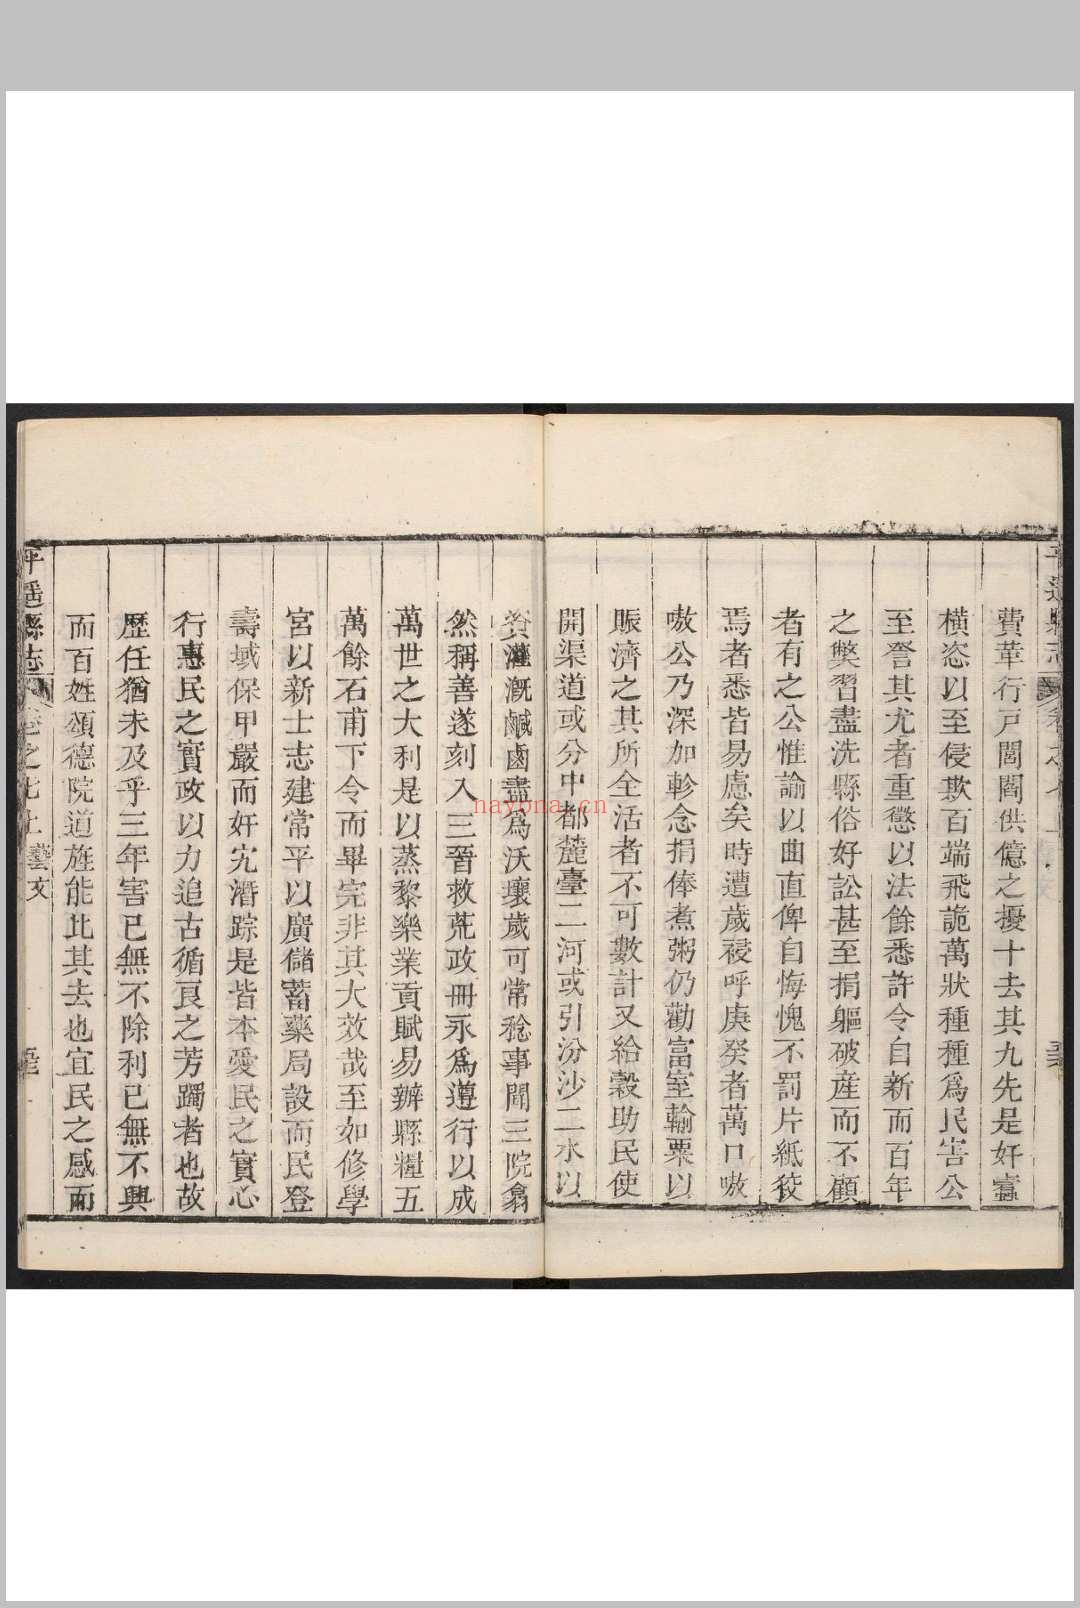 費華行戸閭閻供億之擾十去其九先是好蠹
橫恣以至侵欺百端飛詭萬狀種種爲民害公
至詧其尤者重懲以法餘悉許令自新而百年
之獘習盡洗縣俗好訟甚至捐軀破産而不顧
者有之公惟諭以曲直俾自悔愧不罰片紙狡
焉者悉皆易慮矣時遭歲祲呼庚癸者萬口嗷
嗷公乃深加軫念捐俸煮粥仍勸富室輸粟以
賑濟之其所全活者不可數計又給穀助民使
開渠道或分中都麓臺二河或引汾沙二水以
資灌漑鹹鹵盡爲沃壤歲可常稔事聞三院翕
然稱善遂刻入三晉救荒政冊永爲遵行以成
萬世之大利是以蒸黎樂業貢賦易辦縣糧五
萬餘石甫下令而畢完非其大效哉至如修學
宮以新士志建常平以廣儲蓄藥局設而民登
壽域保甲嚴而奸宄潛踪是皆本愛民之實心
行惠民之實政以力追古循良之芳躅者也故
歷任猶未及乎三年害已無不除利已無不興
而百姓頌德院道旌能比其去也宜民之感而
平遥縣志
卷之七上 藝文
nayona.cn